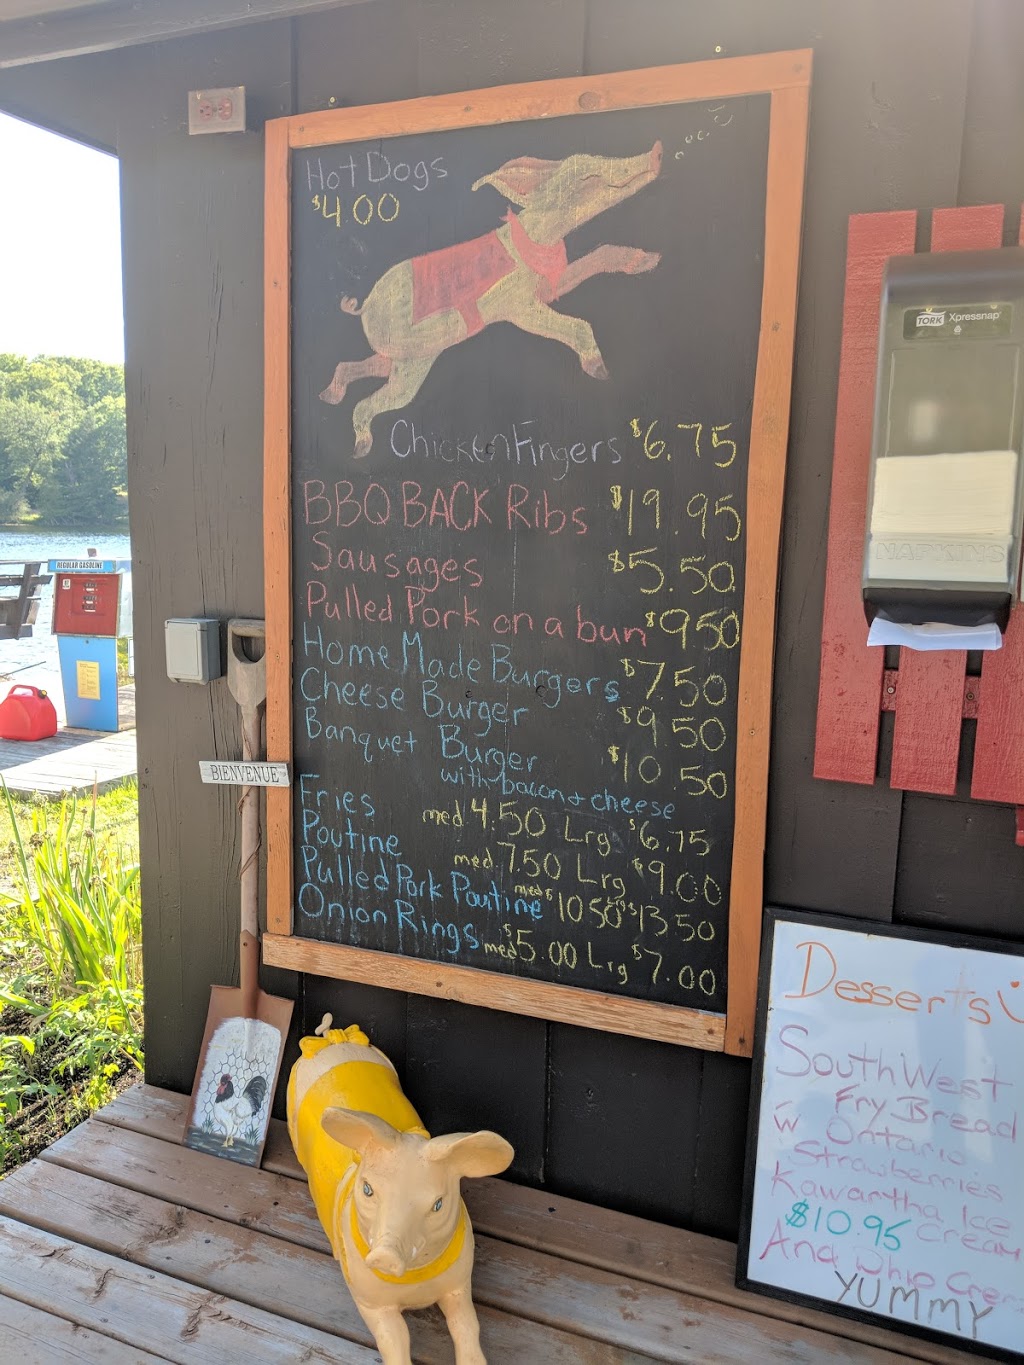 Hot Dogs
$4.00
Chicken Fingers $6.75
BBQ BACK Ribs $19.95
Sausages $5.50
Pulled Pork on a bun $9.50
Home Made Burgers $7.50
Cheese Burger $9.50
Banquet Burger $10.50
with bacon & cheese
Fries med 4.50 Lrg $6.75
Poutine med. 7.50 Lrg $9.00
Pulled Pork Poutine med $10.50 Lrg $13.50
Onion Rings med $5.00 Lrg $7.00
TORK Xpressnap
NAPKINS
REGULAR GASOLINE
BIENVENUE
Desserts
SouthWest
Fry Bread
w Ontario
Strawberries
Kawartha Ice
$10.95 Cream
And Whip Crem
YUMMY